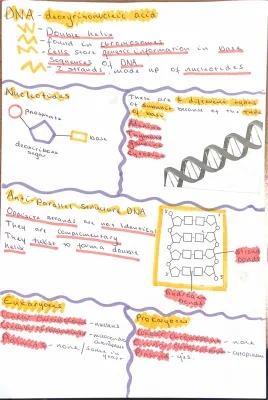 DNA - deoxyribonucleic acid
- Double helix
- found in chromosomes
- cells store genetic information in base
sequences of DNA
- 2 strands made up of nucleotides
Nucleotides
phosphate
base
deoxyribose
sugar
There are 4 different types
of because of the type
of base
Adenine
Thymine
Guanine
Cytosine
Anti-Parallel Structure DNA
Opposite strands are not identical
They are complementary
They twist to form a double
helix
bonds
Hydrogen
bonds
Eukaryotes
- nucleus
- none / some in
yeast
Prokaryotes
- none
- cytoplasm
- yes